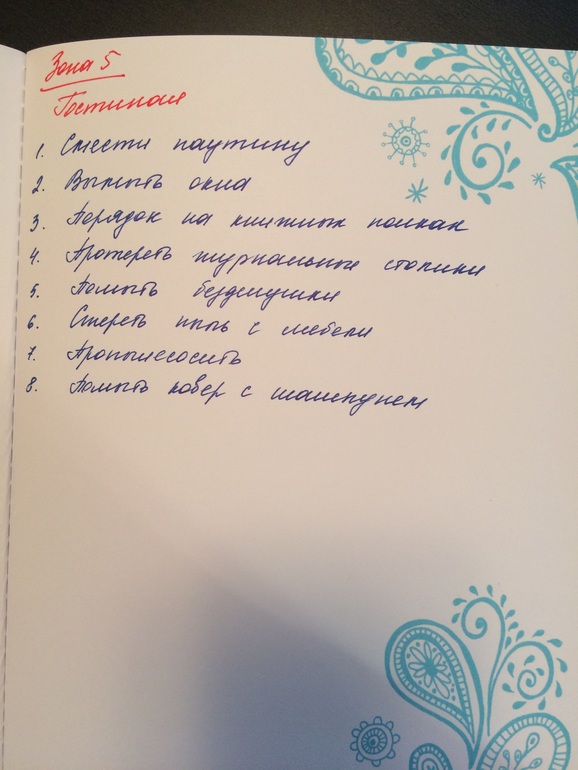 Зона 5
Гостиная
1. Смести паутину
2. Вымыть окна
3. Порядок на книжных полках
4. Протереть журнальные столики
5. Помыть безделушки
6. Стереть пыль с мебели
7. Пропылесосить
8. Помыть ковер с шампунем